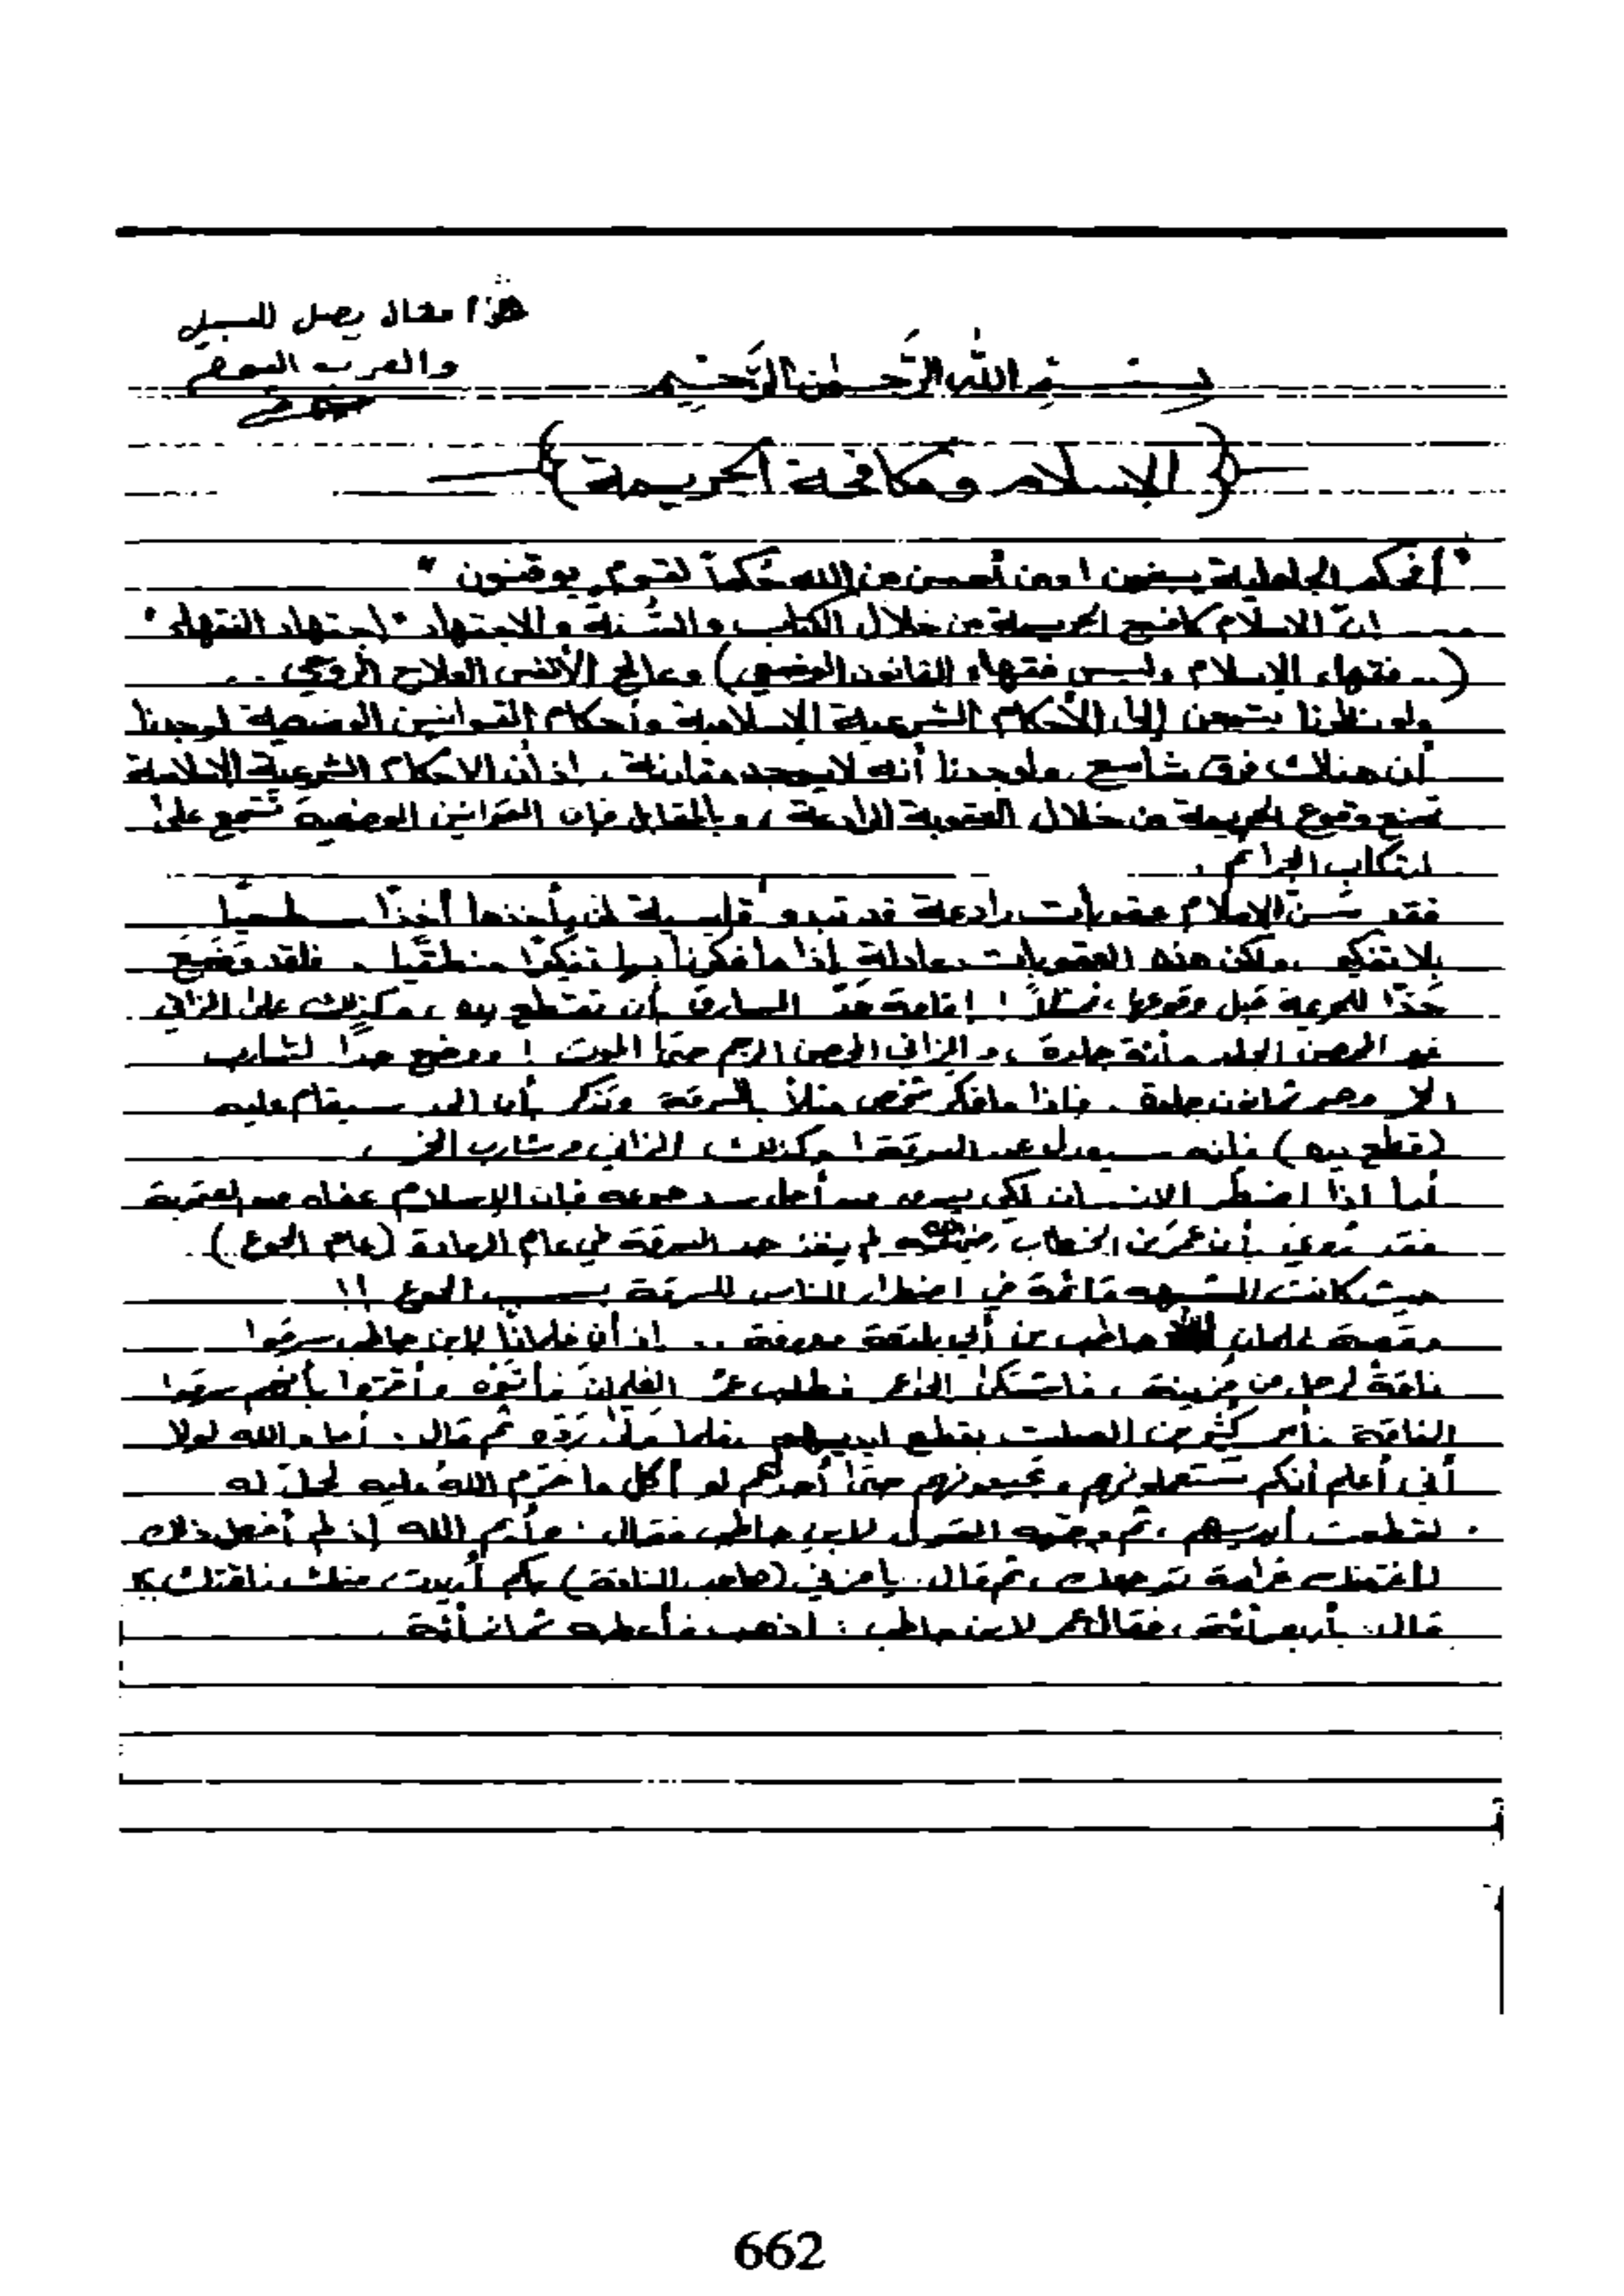 هذا مقال يصل للسبيل
والعرب اليوم
بسم الله الرحمن الرحيم
{ الإسلام ومكافحة الجريمة }
" أفحكم الجاهلية يبغون ! ومن أحسن من الله حُكماً لقوم يوقنون "
.... إنّ الاسلام كافح الجريمة من خلال الكتاب والسُنة والاجتهاد " إجتهاد الفقهاء "
( .. فقهاء الإسلام وليس فقهاء القانون الوضعي ) وعالج الأنفس العلاج الروحي ..
ولو نظرنا بتمعن إلى الأحكام الشرعية الإسلامية وأحكام القوانين الوضعية لوجدنا
أن هناك فرق شاسع ولوجدنا أنه لا يوجد مقارنة . إذ أن الاحكام الشرعية الإسلامية
تمنع وقوع الجريمة من خلال العقوبة الرادعة ، وبالمقابل فإن القوانين الوضعية تشجع على
ارتكاب الجرائم .
فقد سَنّ الإسلام عقوبات رادعة قد تبدو قاسية لمن يأخذها أخذاً سطحياً
بلا تفكير ، ولكن هذه العقوبات عادلة إذا ما فكرنا بها تفكيراً منطقياً . فلقد وَضَعَ
حَدّاً للجريمة قبل وقوعها ، فمثلاً ! إقامة حَدّ السارق بأن تقطع يده ، وكذلك على الزاني
غير المحصن الجلد مائة جلدة ، والزاني المحصن الرجم حتى الموت ! ووضع حداً لشارب
الخمر وهو ثمانون جلدة . فإذا ما فكر شخص مثلاً بالسرقة وتذكر بأن الحد سيقام عليه
( قطع يده ) فإنه سيعدل عن السرقة ! وكذلك الزاني وشارب الخمر .
أما إذا اضطر الانسان لكي يسرق من أجل سد جوعه فإن الإسلام عفاه من العقوبة
فقد رُوِيَ بأن عمر بن الخطاب رضي الله عنه لم ينفذ حد السرقة في عام الرمادة ( عام الجوع )
حيث كانت الشبهة قائمة في اضطرار الناس للسرقة بسبب الجوع !!
وقصة غلمان حاطب بن أبي بلتعة معروفة .. إذ أن غلماناً لابن حاطب سرقوا
ناقةً لرجل من مُزينة ، فاشتكى إلى عمر فطلب عمر الغلمانَ فأتَوْه وأقروا بأنهم سرقوا
الناقة فأمر كُثير بن الصلت بقطع أيديهم فلما ولّى رَدّه ثم قال : أما والله لولا
أني أعلم أنكم تستعملونهم وتجيعونهم حتى أحدهم لو أكل ما حَرّم اللهُ عليه لحلّ له
لقطعت أيديهم ، ثم وجّه القول لابن حاطب فقال : وأيم الله إذ لم أفعل ذلك
لأغرمنك غرامة توجعك ، ثم قال يا مزني ( صاحب الناقة ) بكم أُريدت منك ناقتك ؟
قال : بأربعمائة ، فقال عمر لابن حاطب : إذهب فأعطه ثمانمائة .
662